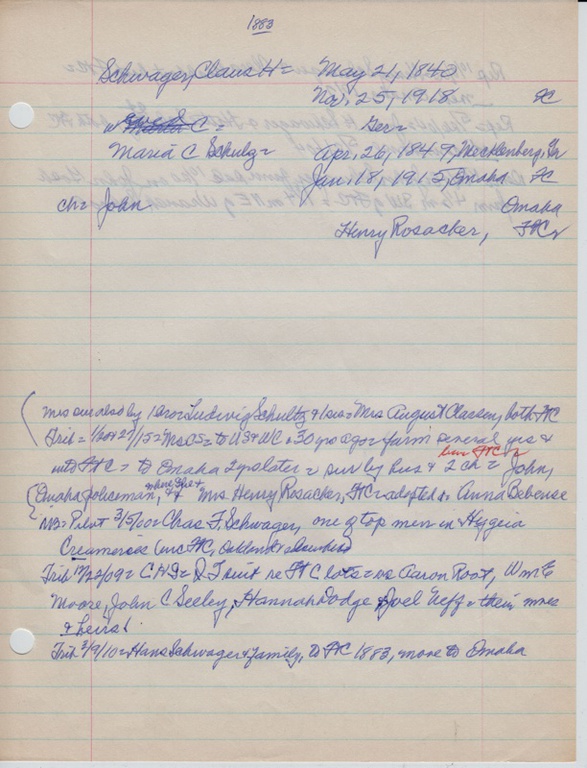 1883
Schwager, Claus H = May 21, 1840
Nov. 25, 1918 FC
w C = Ger =
Maria C Schulz = Apr. 26, 1849, Mecklenberg, Gr
Jan. 18, 1915, Omaha FC
ch = John Omaha
Henry Rosacker, FC
Mrs sur also by 1 bro = Ludwig Schultz & 1 sis = Mrs August Classen, both FC
Trib = 1/27/15 = Mrs CS = to US & WC = 30 yrs ago = farm several yrs &
here FC
into FC = to Omaha 2 yrs later = sur by hus & 2 ch = John,
Omaha policeman, & Mrs Henry Rosacker, FC = adopted = Anna Bebense
NB = Pilot 3/5/00 = Chas F. Schwager, one of top men in Hygeia
Creameries (inc FC, Oakland & elsewhere)
Trib 12/22/09 = CHS = suit re FC lots = vs Aaron Root, Wm E
Moore, John C Seeley, Hannah Dodge Joel Neff = their wives
& heirs!
Trib 3/9/10 = Hans Schwager & family, to FC 1883, move to Omaha